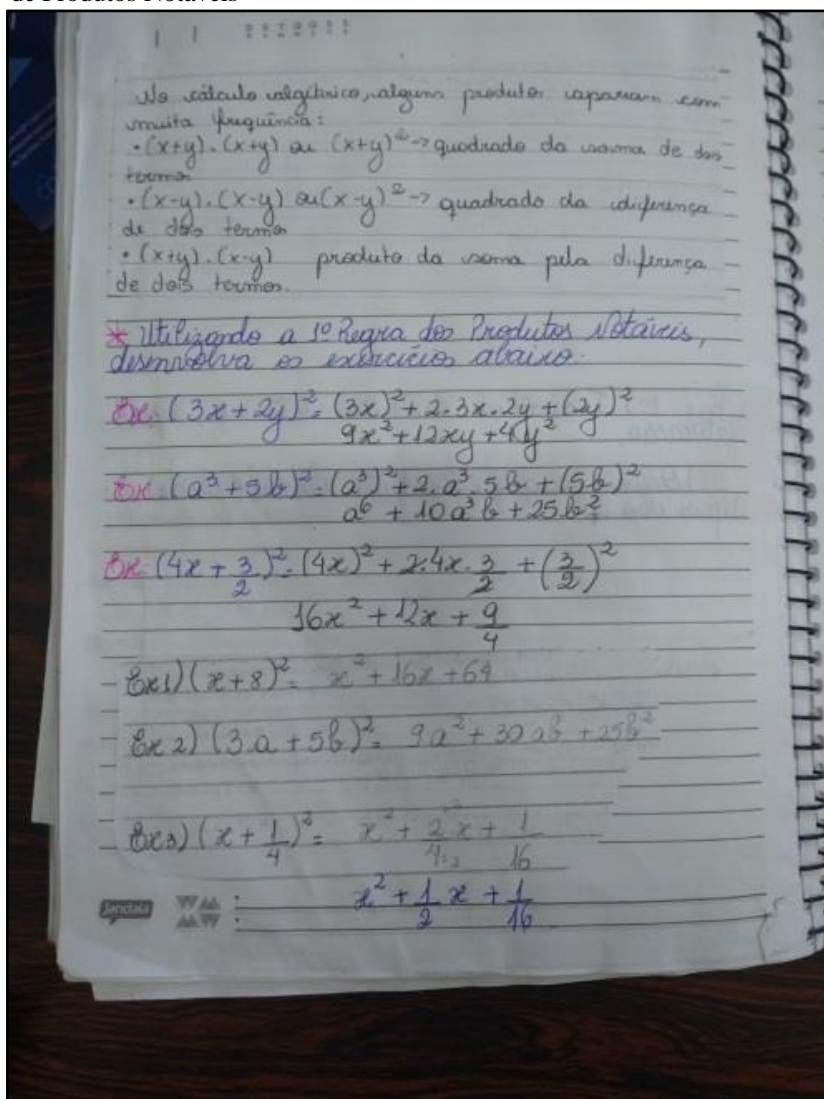 de Produtos Notáveis
No cálculo algébrico, alguns produtos aparecem com
muita frequência:
• (x+y) . (x+y) ou (x+y)² -> quadrado da soma de dois
termos
• (x-y) . (x-y) ou (x-y)² -> quadrado da diferença
de dois termos
• (x+y) . (x-y) produto da soma pela diferença
de dois termos.
* Utilizando a 1º Regra dos Produtos Notáveis,
desenvolva os exercícios abaixo.
Ex: (3x + 2y)² = (3x)² + 2.3x.2y + (2y)²
9x² + 12xy + 4y²
Ex: (a³ + 5b)² = (a³)² + 2.a³.5b + (5b)²
a⁶ + 10a³b + 25b²
Ex: (4x + 3/2)² = (4x)² + 2.4x.3/2 + (3/2)²
16x² + 12x + 9/4
Ex1) (x+8)² = x² + 16x + 64
Ex 2) (3.a + 5b)² = 9a² + 30ab + 25b²
Ex3) (x + 1/4)² = x² + 2/4 x + 1/16
x² + 1/2 x + 1/16
jandaia